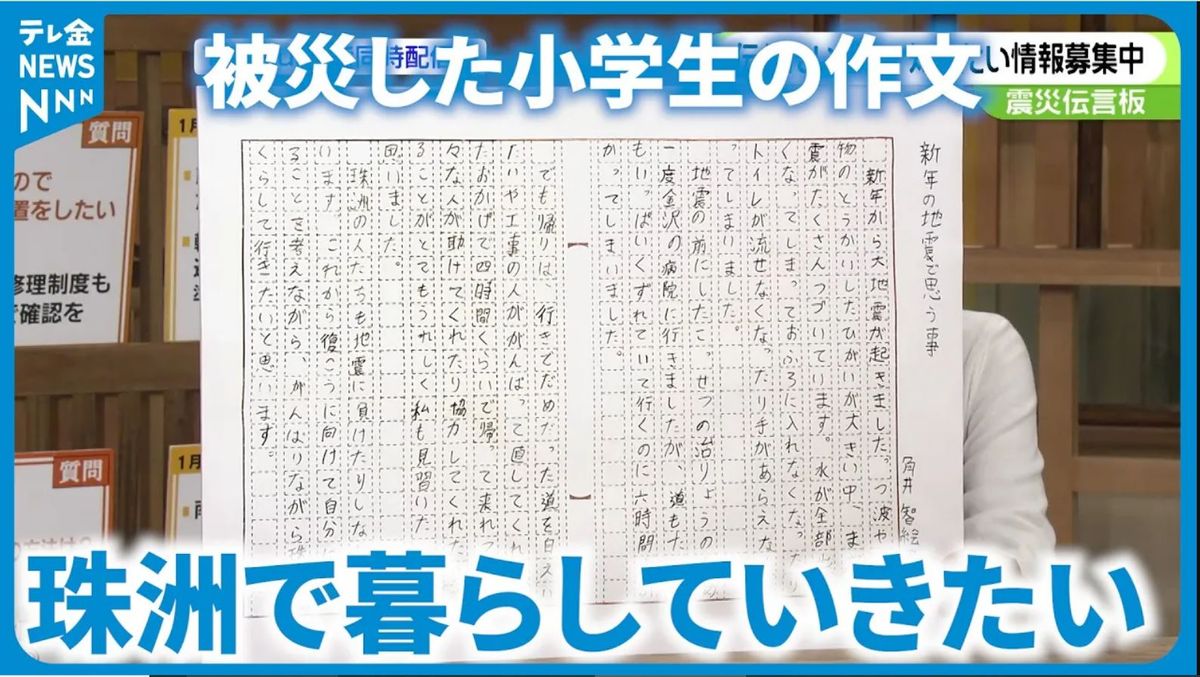 テレ金
NEWS
NNN
被災した小学生の作文
同時配信
たい情報募集中
震災伝言板
質問
ので
置をしたい
修理制度も
確認を
1月
質問
1月
新年の地震で思う事
角井 智絵
新年から大地震が起きました。つ波や
物のとうかいしたひがいが大きい中、ま
震がたくさんつづいています。水が全部
くなってしまっておふろに入れなくなったり
トイレが流せなくなったり手があらえな
ってしまいました。
地震の前にしたこっせつの治りょうの
一度金沢の病院に行きましたが、道もた
もいっぱいくずれていて行くのに六時間
かってしまいました。
でも帰りは、行きでだめだった道を自え
たいや工事の人ががんばって直してくれ
たおかげで四時間くらいで帰って来れ
々な人が助けてくれたり協力してくれた
ることがとてもうれしく私も見習いた
思いました。
珠洲の人たちも地震に負けたりしな
います。これから復こうに向けて自分に
ることを考えながら、がんばりながら珠
くらして行きたいと思います。
珠洲で暮らしていきたい